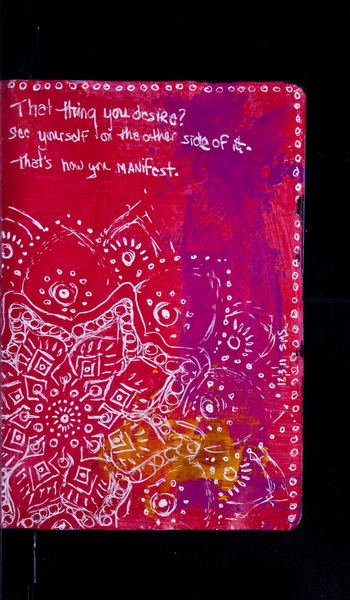 That thing you desire?
See yourself on the other side of it.
That's how you MANifest.